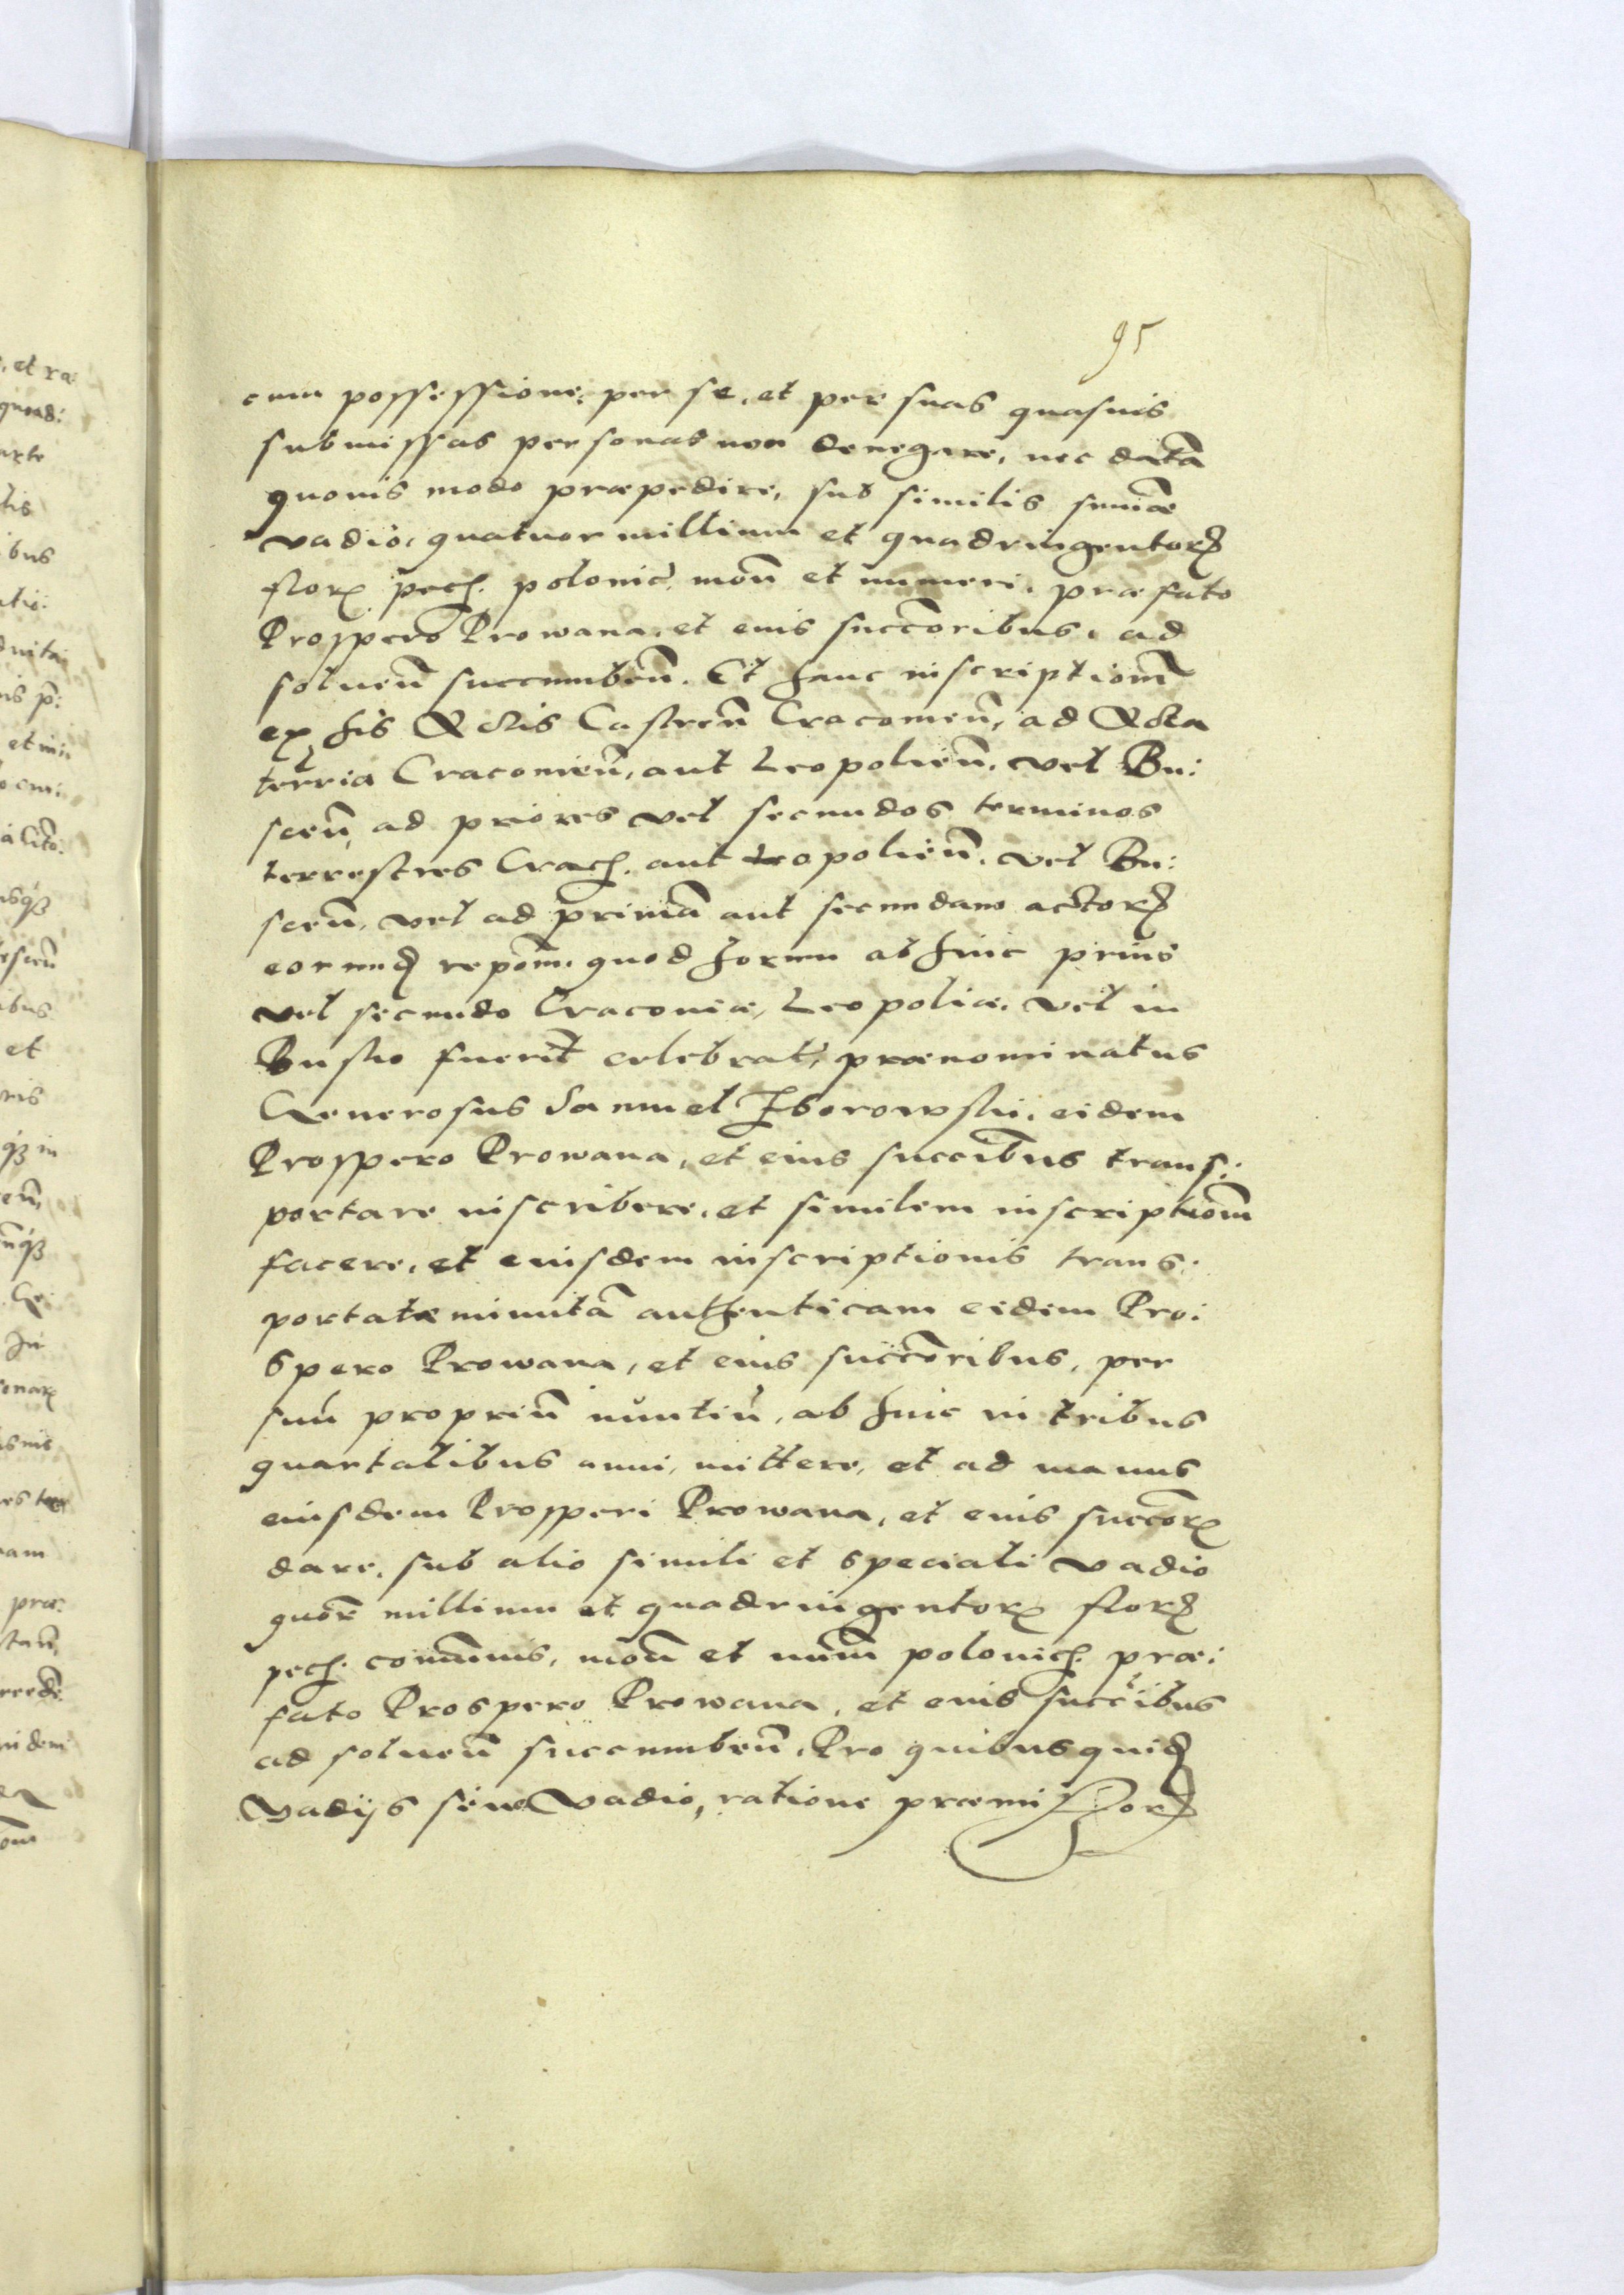 95
cum possessione, per se, et per suas quasuis
submissas personas non denegare, nec datã
quouis modo præpedire, sub similis sum̃æ
vadio, quatuor millium et quadringentorꝝ
florꝝ pecH. polonic̃. mon̄ et numeri, præfato
Prospero Prowana, et eius succ̃oribus, ad
soluen̄ succumben̄. Et hanc inscriptiom̃
ex his Actis Castren̄ Cracouien̄, ad Acta
terr̃ia Cracouien̄, aut Leopolien̄. vel Bu:
scen̄, ad priores vel secundos terminos
terrestres CracH. aut Leopolien̄. vel Bu:
scen̄, vel ad primã aut secundam actorꝝ
eorundꝫ repom̃. quod horum abhinc prius
vel secundo Cracouiæ, Leopoliæ, vel in
Busko fuerit̃ celebrat̃, prænominatus
Generosus Samuel Zborowski, eidem
Prospero Prowana, et eius succibus trans:
portare inscribere, et similem inscriptiom̃
facere, et eiusdem inscriptionis trans:
portatæ minutã authenticam eidem Pro:
spero Prowana, et eius succ̃oribus, per
suũ propriũ nuntiũ, ab hinc in tribus
quartalibus anni, mittere, et ad manus
eiusdem Prosperi Prowana, et eius succ̃orꝝ
dare, sub alio simili et speciali vadio
quor̃ millium et quadringentorꝝ florꝝ
pecH. com̃unis, mon̄ et num̃ polonicH. præ:
fato Prospero Prowana, et eius succ̃ibus
ad soluen̄ succumben̄. Pro quibusquidꝫ
Vadijs siue Vadio, ratione præmissorꝝ